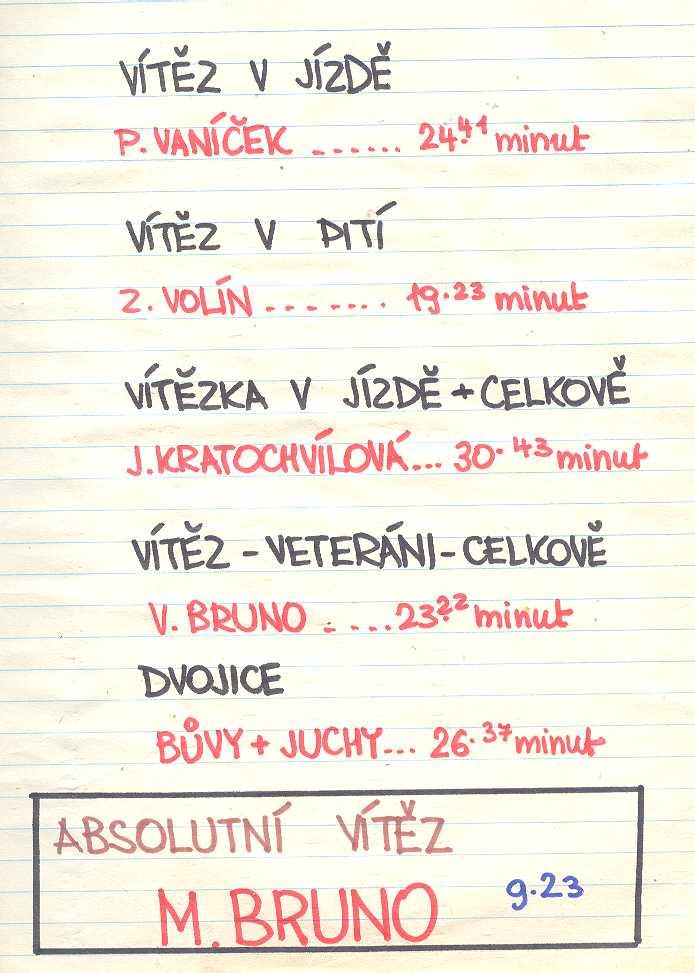 VÍTĚZ V JÍZDĚ
P. VANÍČEK ...... 24.41 minut
VÍTĚZ V PITÍ
Z. VOLÍN ....... 19.23 minut
VÍTĚZKA V JÍZDĚ + CELKOVĚ
J. KRATOCHVÍLOVÁ... 30.43 minut
VÍTĚZ - VETERÁNI - CELKOVĚ
V. BRUNO .....23.22 minut
DVOJICE
BŮVY + JUCHY... 26.37 minut
ABSOLUTNÍ VÍTĚZ
M. BRUNO 9.23